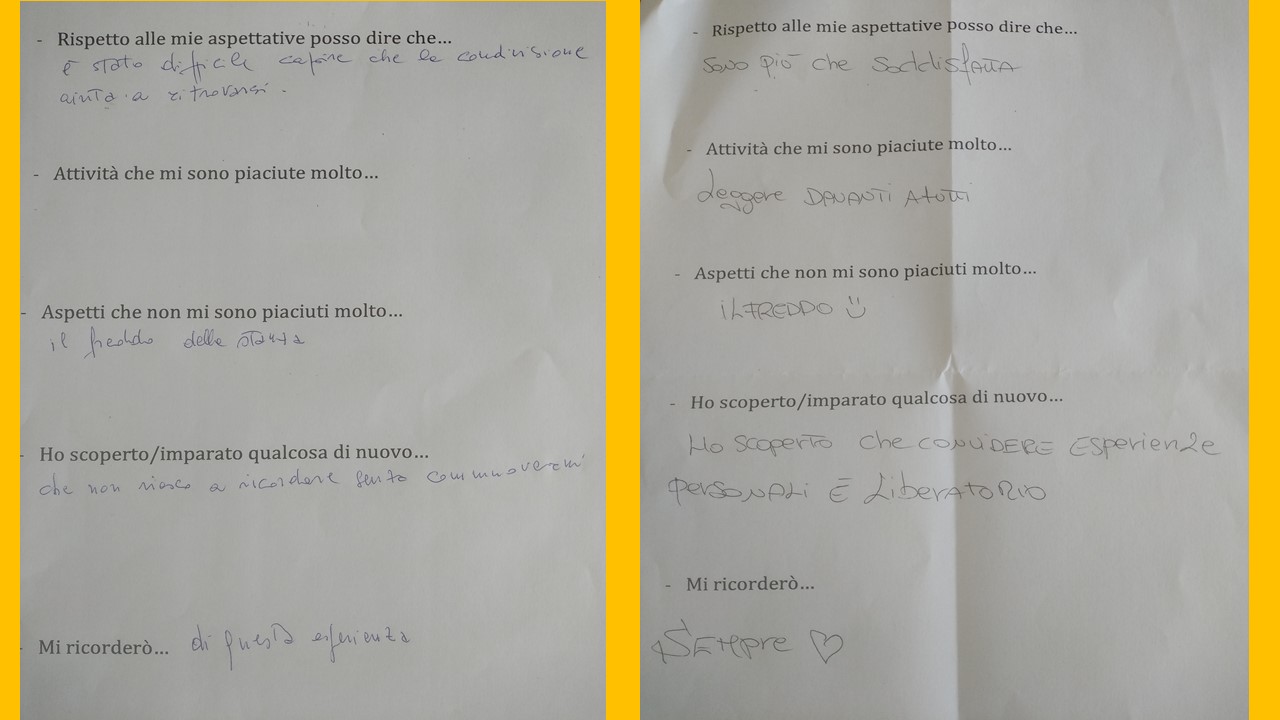 - Rispetto alle mie aspettative posso dire che...
è stato difficile capire che la condivisione
aiuta a ritrovarsi.
- Attività che mi sono piaciute molto...
- Aspetti che non mi sono piaciuti molto...
il freddo della stanza
- Ho scoperto/imparato qualcosa di nuovo...
che non riesco a ricordare senza commuovermi
- Mi ricorderò... di questa esperienza
- Rispetto alle mie aspettative posso dire che...
Sono più che soddisfatta
- Attività che mi sono piaciute molto...
Leggere DAVANTI A tutti
- Aspetti che non mi sono piaciuti molto...
iL FREDDO
- Ho scoperto/imparato qualcosa di nuovo...
Ho scoperto che CONVIDERE ESperienze
personALi È LiberATORIO
- Mi ricorderò...
SEMpre